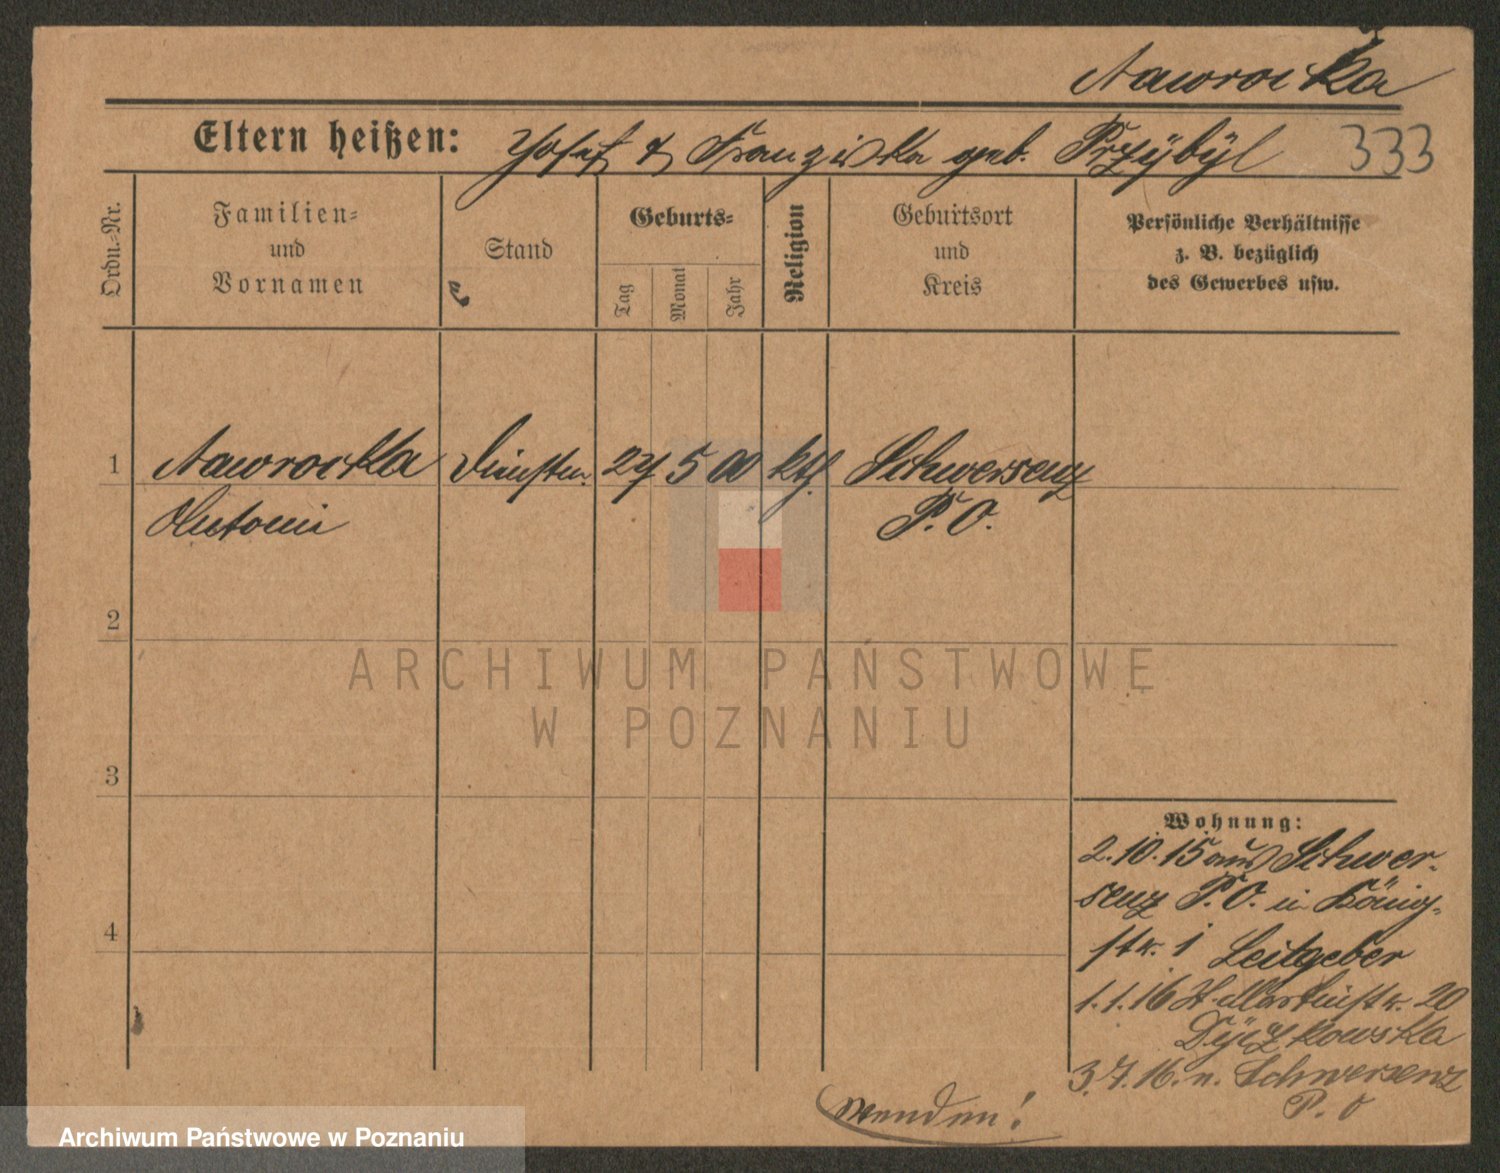 Nawrocka
Eltern heißen: Josef & Franziska geb. Przÿbÿl 333
Ordn.-Nr.
Familien-
und
Vornamen
Stand
Geburts-
Tag
Monat
Jahr
Religion
Geburtsort
und
Kreis
Persönliche Verhältnisse
z. B. bezüglich
des Gewerbes usw.
1 Nawrocka Dienstm. 27 5 00 kth. Schwersenz
Antonie P. O.
2
3
4
Wohnung:
2.10.15 aus Schwer-
senz P. O. in König-
str. 1 Leitgeber
1.1.16 St. Martinstr. 20
Dÿczkowska
3.7.16. n. Schwersenz
P. O
wenden!
ARCHIWUM PAŃSTWOWE
W POZNANIU
Archiwum Państwowe w Poznaniu